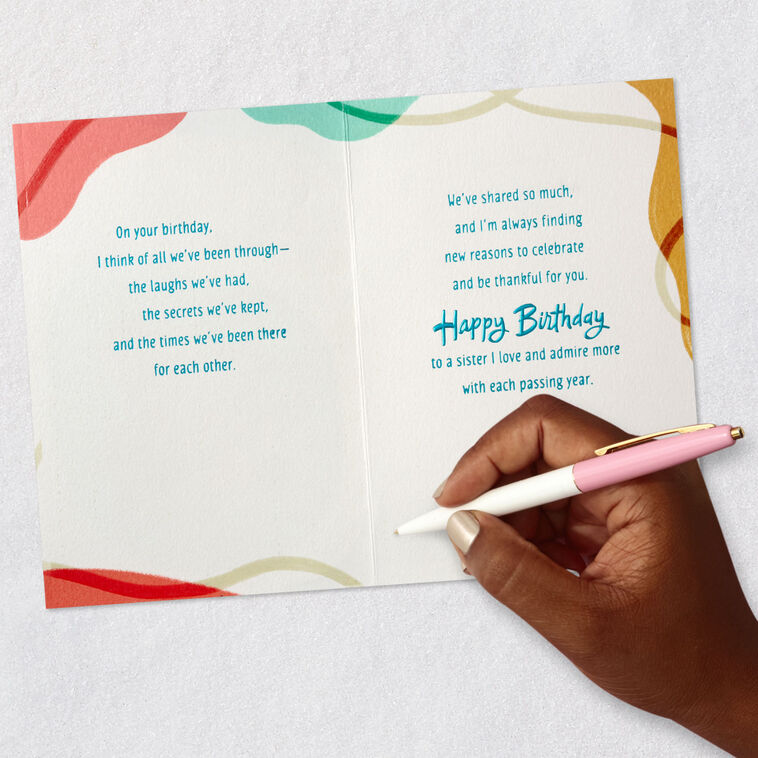 On your birthday,
I think of all we've been through—
the laughs we've had,
the secrets we've kept,
and the times we've been there
for each other.
We've shared so much,
and I'm always finding
new reasons to celebrate
and be thankful for you.
Happy Birthday
to a sister I love and admire more
with each passing year.